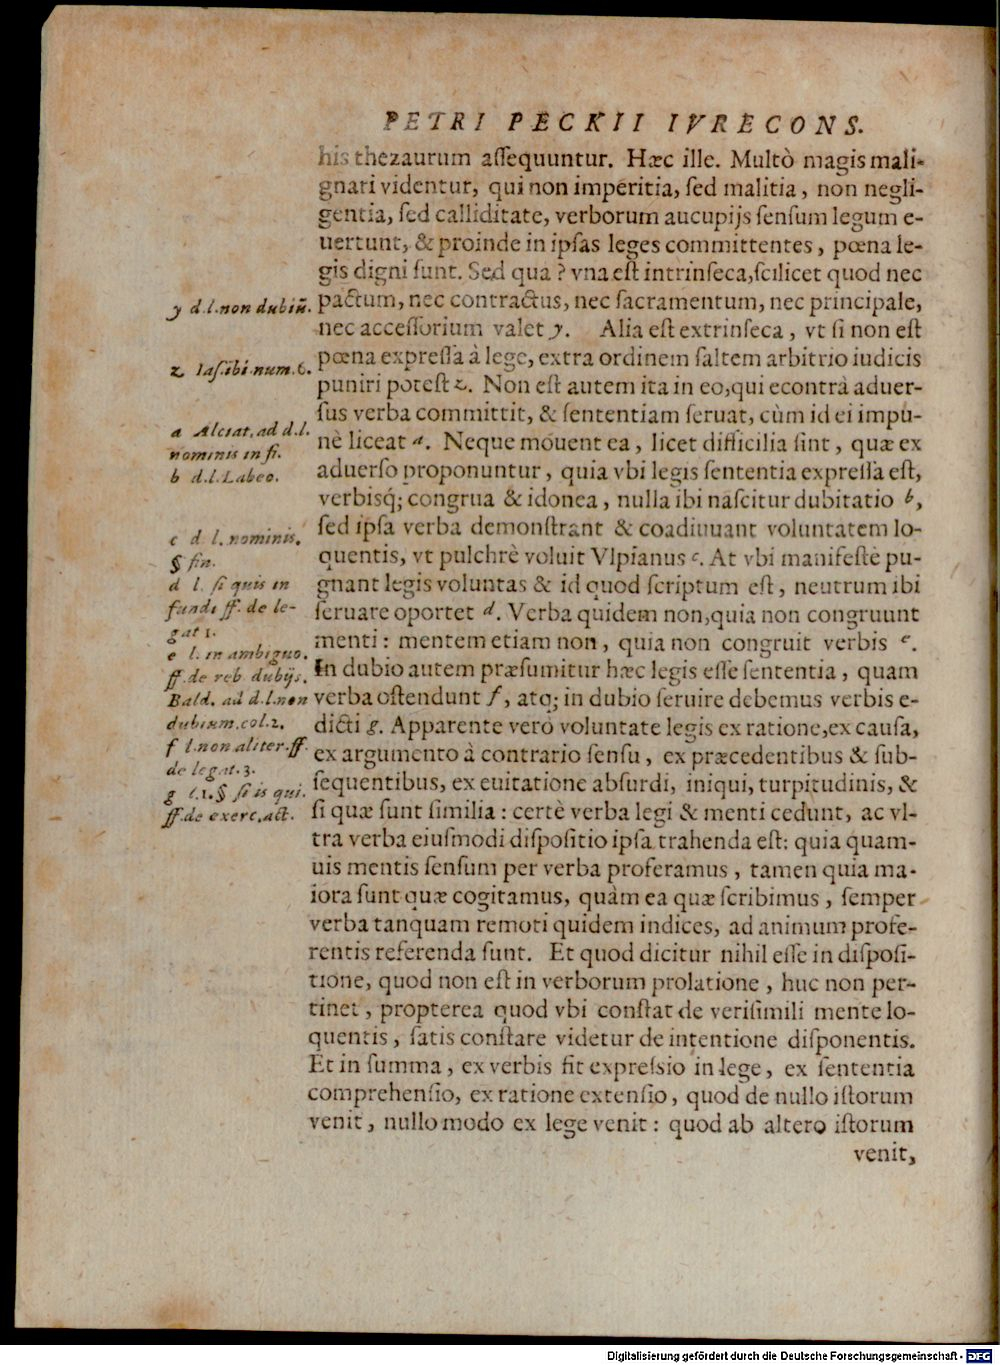 PETRI PECKII IVRECONS.
his thezaurum aſſequuntur. Hæc ille. Multò magis mali-
gnari videntur, qui non imperitia, ſed malitia, non negli-
gentia, ſed calliditate, verborum aucupijs ſenſum legum e-
uertunt, & proinde in ipſas leges committentes, pœna le-
gis digni ſunt. Sed qua? vna eſt intrinſeca, ſcilicet quod nec
pactum, nec contractus, nec ſacramentum, nec principale,
nec acceſſorium valet y. Alia eſt extrinſeca, vt ſi non eſt
pœna expreſſa à lege, extra ordinem ſaltem arbitrio iudicis
puniri poteſt z. Non eſt autem ita in eo, qui econtrà aduer-
ſus verba committit, & ſententiam ſeruat, cùm id ei impu-
nè liceat a. Neque mouent ea, licet difficilia ſint, quæ ex
aduerſo proponuntur, quia vbi legis ſententia expreſſa eſt,
verbisq; congrua & idonea, nulla ibi naſcitur dubitatio b,
ſed ipſa verba demonſtrant & coadiuuant voluntatem lo-
quentis, vt pulchrè voluit Vlpianus c. At vbi manifeſtè pu-
gnant legis voluntas & id quod ſcriptum eſt, neutrum ibi
ſeruare oportet d. Verba quidem non, quia non congruunt
menti: mentem etiam non, quia non congruit verbis e.
In dubio autem præſumitur hæc legis eſſe ſententia, quam
verba oſtendunt f, atq; in dubio ſeruire debemus verbis e-
dicti g. Apparente verò voluntate legis ex ratione, ex cauſa,
ex argumento à contrario ſenſu, ex præcedentibus & ſub-
ſequentibus, ex euitatione abſurdi, iniqui, turpitudinis, &
ſi quæ ſunt ſimilia: certè verba legi & menti cedunt, ac vl-
tra verba eiuſmodi diſpoſitio ipſa trahenda eſt: quia quam-
uis mentis ſenſum per verba proferamus, tamen quia ma-
iora ſunt quæ cogitamus, quàm ea quæ ſcribimus, ſemper
verba tanquam remoti quidem indices, ad animum profe-
rentis referenda ſunt. Et quod dicitur nihil eſſe in diſpoſi-
tione, quod non eſt in verborum prolatione, huc non per-
tinet, propterea quod vbi conſtat de veriſimili mente lo-
quentis, ſatis conſtare videtur de intentione diſponentis.
Et in ſumma, ex verbis fit expreſsio in lege, ex ſententia
comprehenſio, ex ratione extenſio, quod de nullo iſtorum
venit, nullo modo ex lege venit: quod ab altero iſtorum
venit,
y d.l.non dubiũ.
z Iaſ.ibi num.6.
a Alciat, ad d.l.
nominis in fi.
b d.l.Labeo.
c d l. nominis.
§ fin.
d l. ſi quis in
fundi ff. de le-
gat 1.
e l. in ambiguo.
ff. de reb dubijs.
Bald. ad d.l.non
dubium.col.2.
f l.non aliter.ff.
de legat.3.
g l.1.§ ſi is qui.
ff.de exerc.act.
Digitalisierung gefördert durch die Deutsche Forschungsgemeinschaft - DFG